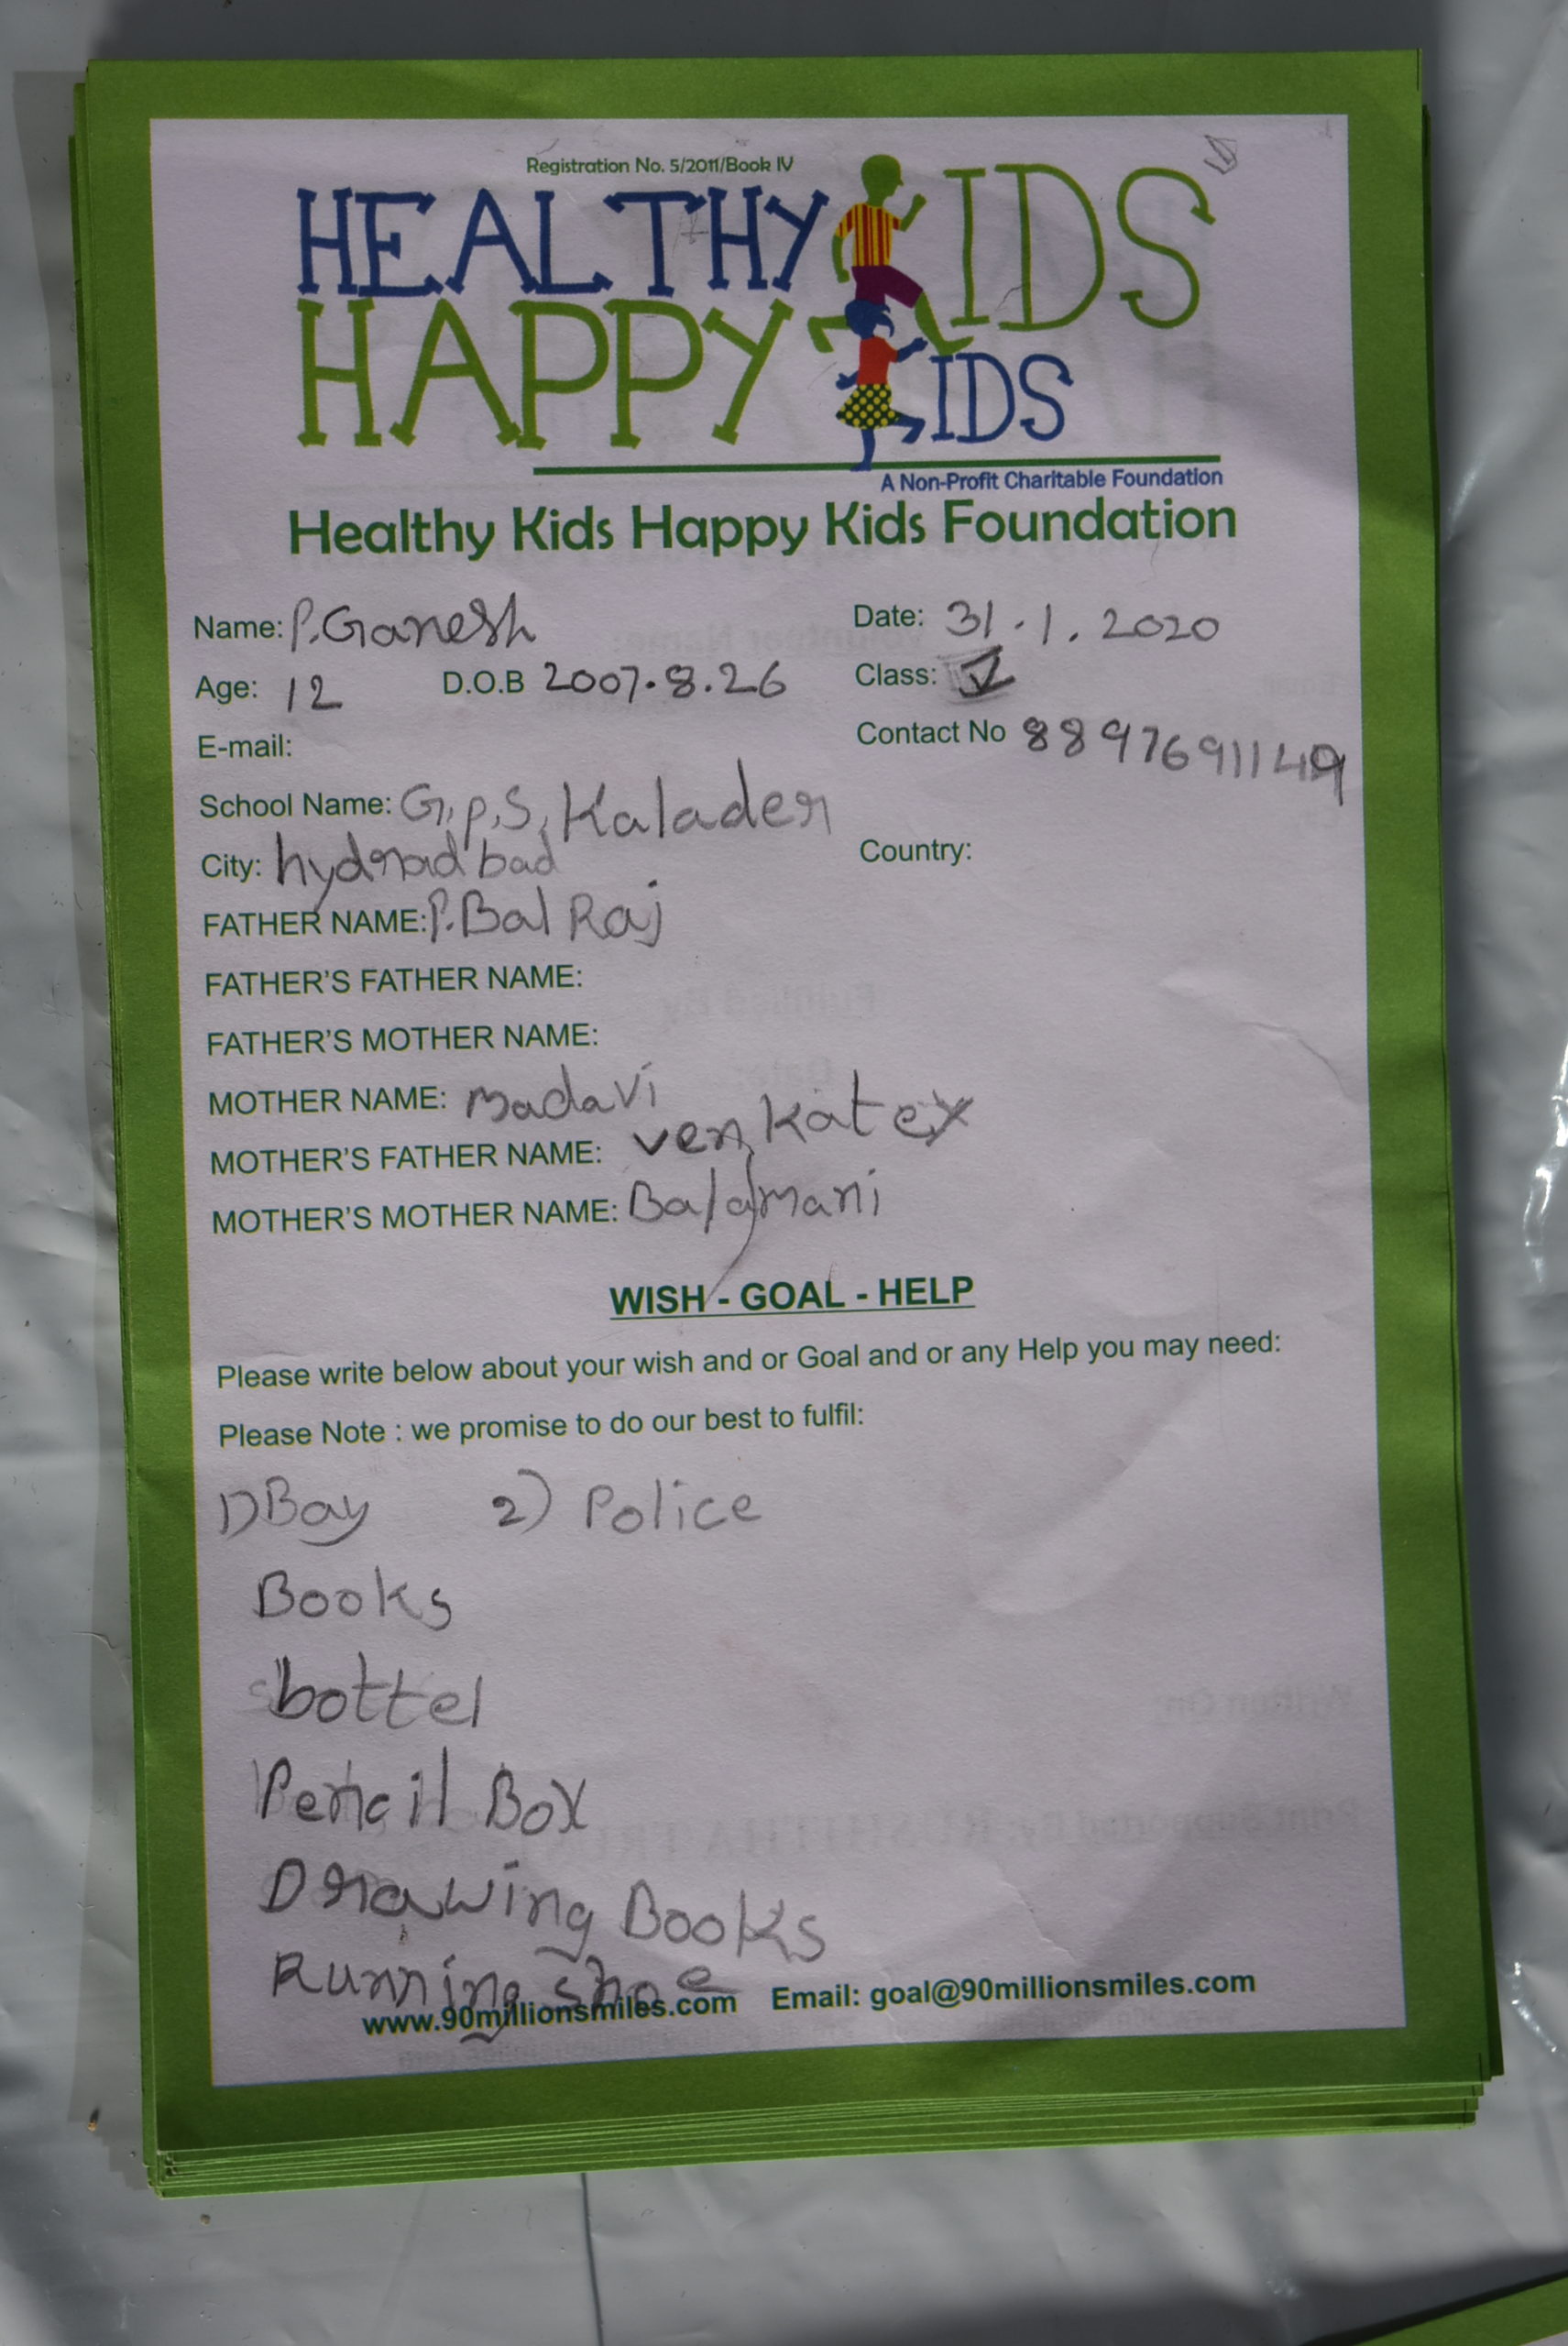 Registration No. 5/2011/Book IV
HEALTHY KIDS
HAPPY KIDS
A Non-Profit Charitable Foundation
Healthy Kids Happy Kids Foundation
Name: P.Ganesh Date: 31.1.2020
Age: 12 D.O.B 2007.8.26 Class: V
E-mail: Contact No 8897691149
School Name: G.P.S, Kalader
City: hydradbad Country:
FATHER NAME: P.Bal Raj
FATHER'S FATHER NAME:
FATHER'S MOTHER NAME:
MOTHER NAME: Madavi
MOTHER'S FATHER NAME: venkatey
MOTHER'S MOTHER NAME: Balamani
WISH - GOAL - HELP
Please write below about your wish and or Goal and or any Help you may need:
Please Note : we promise to do our best to fulfil:
1) Bay 2) Police
Books
bottel
Pencil Box
Drawing Books
Running shoe
www.90millionsmiles.com Email: goal@90millionsmiles.com